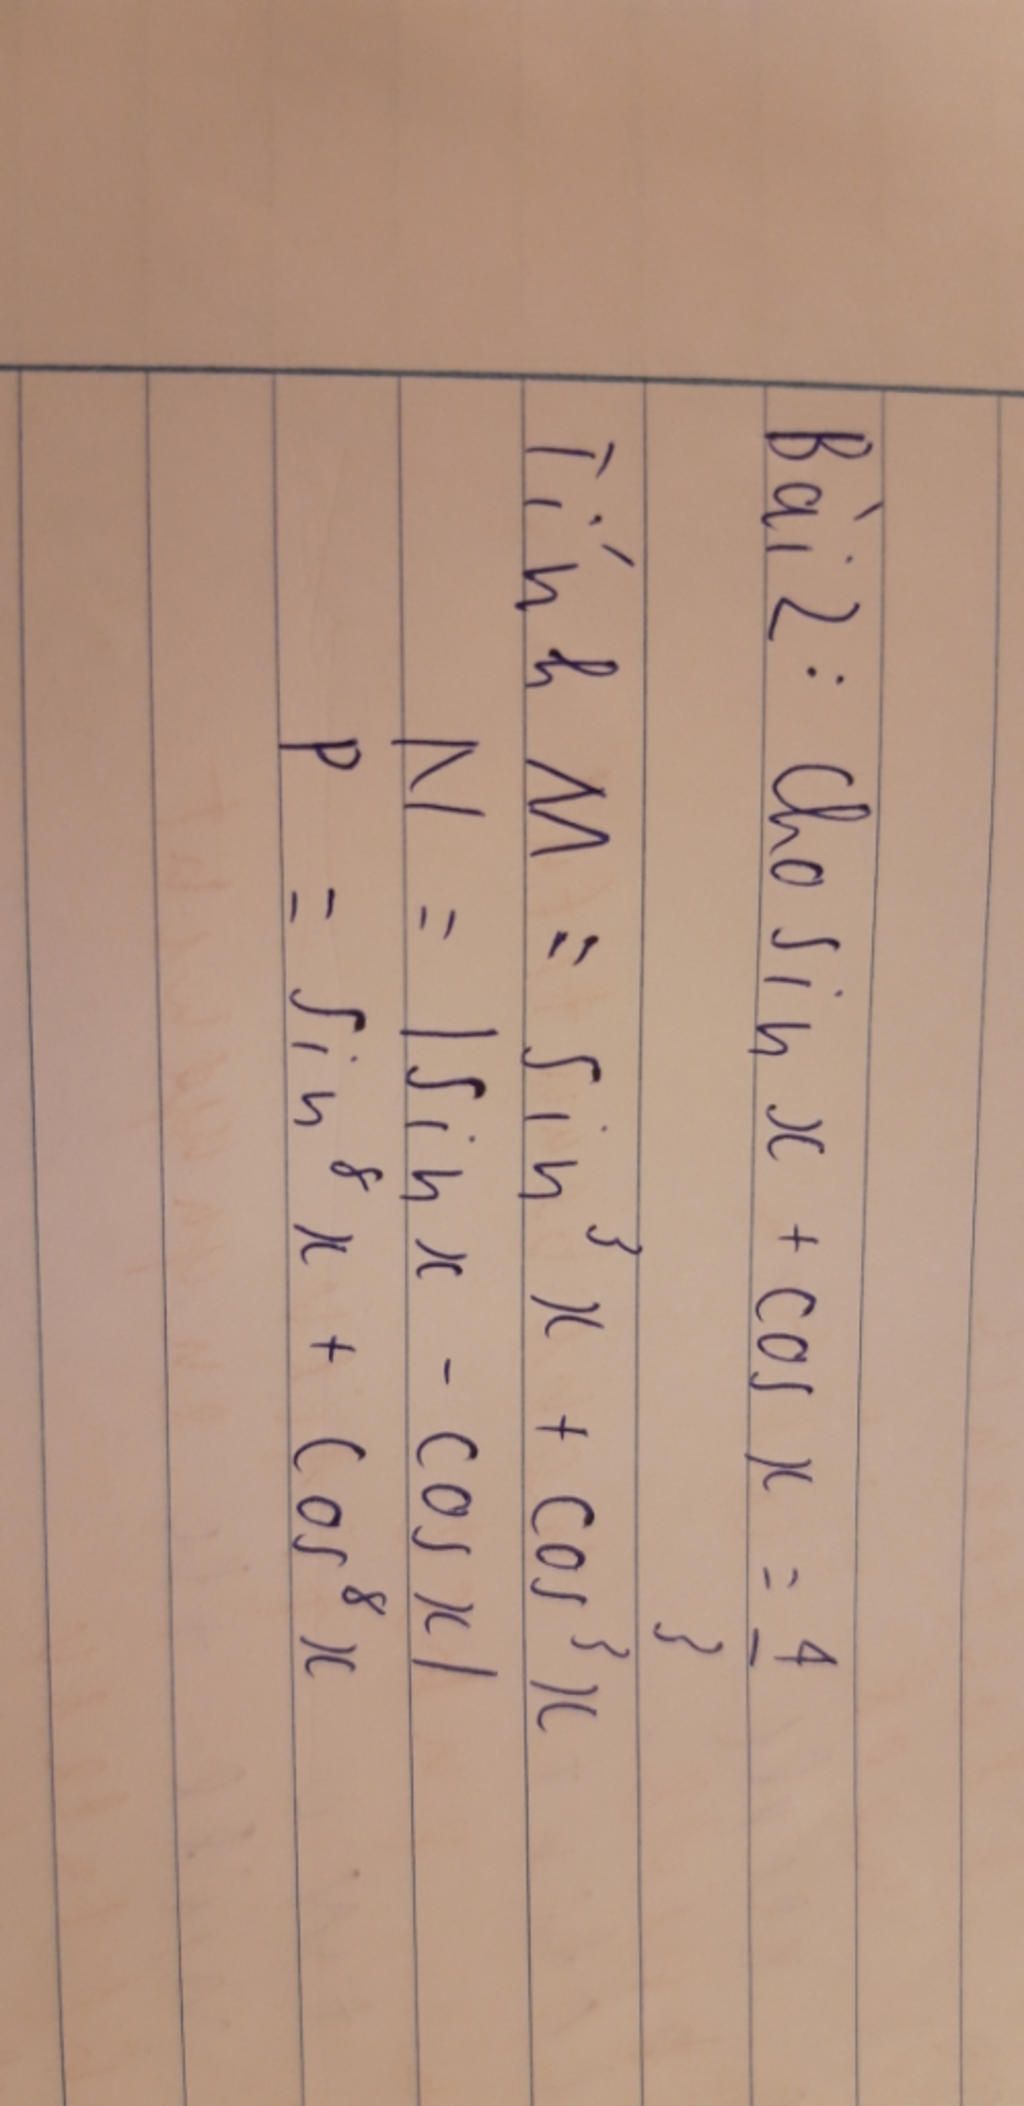 Bài 2: Cho sin x + cos x = 4/3
Tính M = sin³x + cos³x
N = |sin x - cos x|
P = sin⁸x + cos⁸x